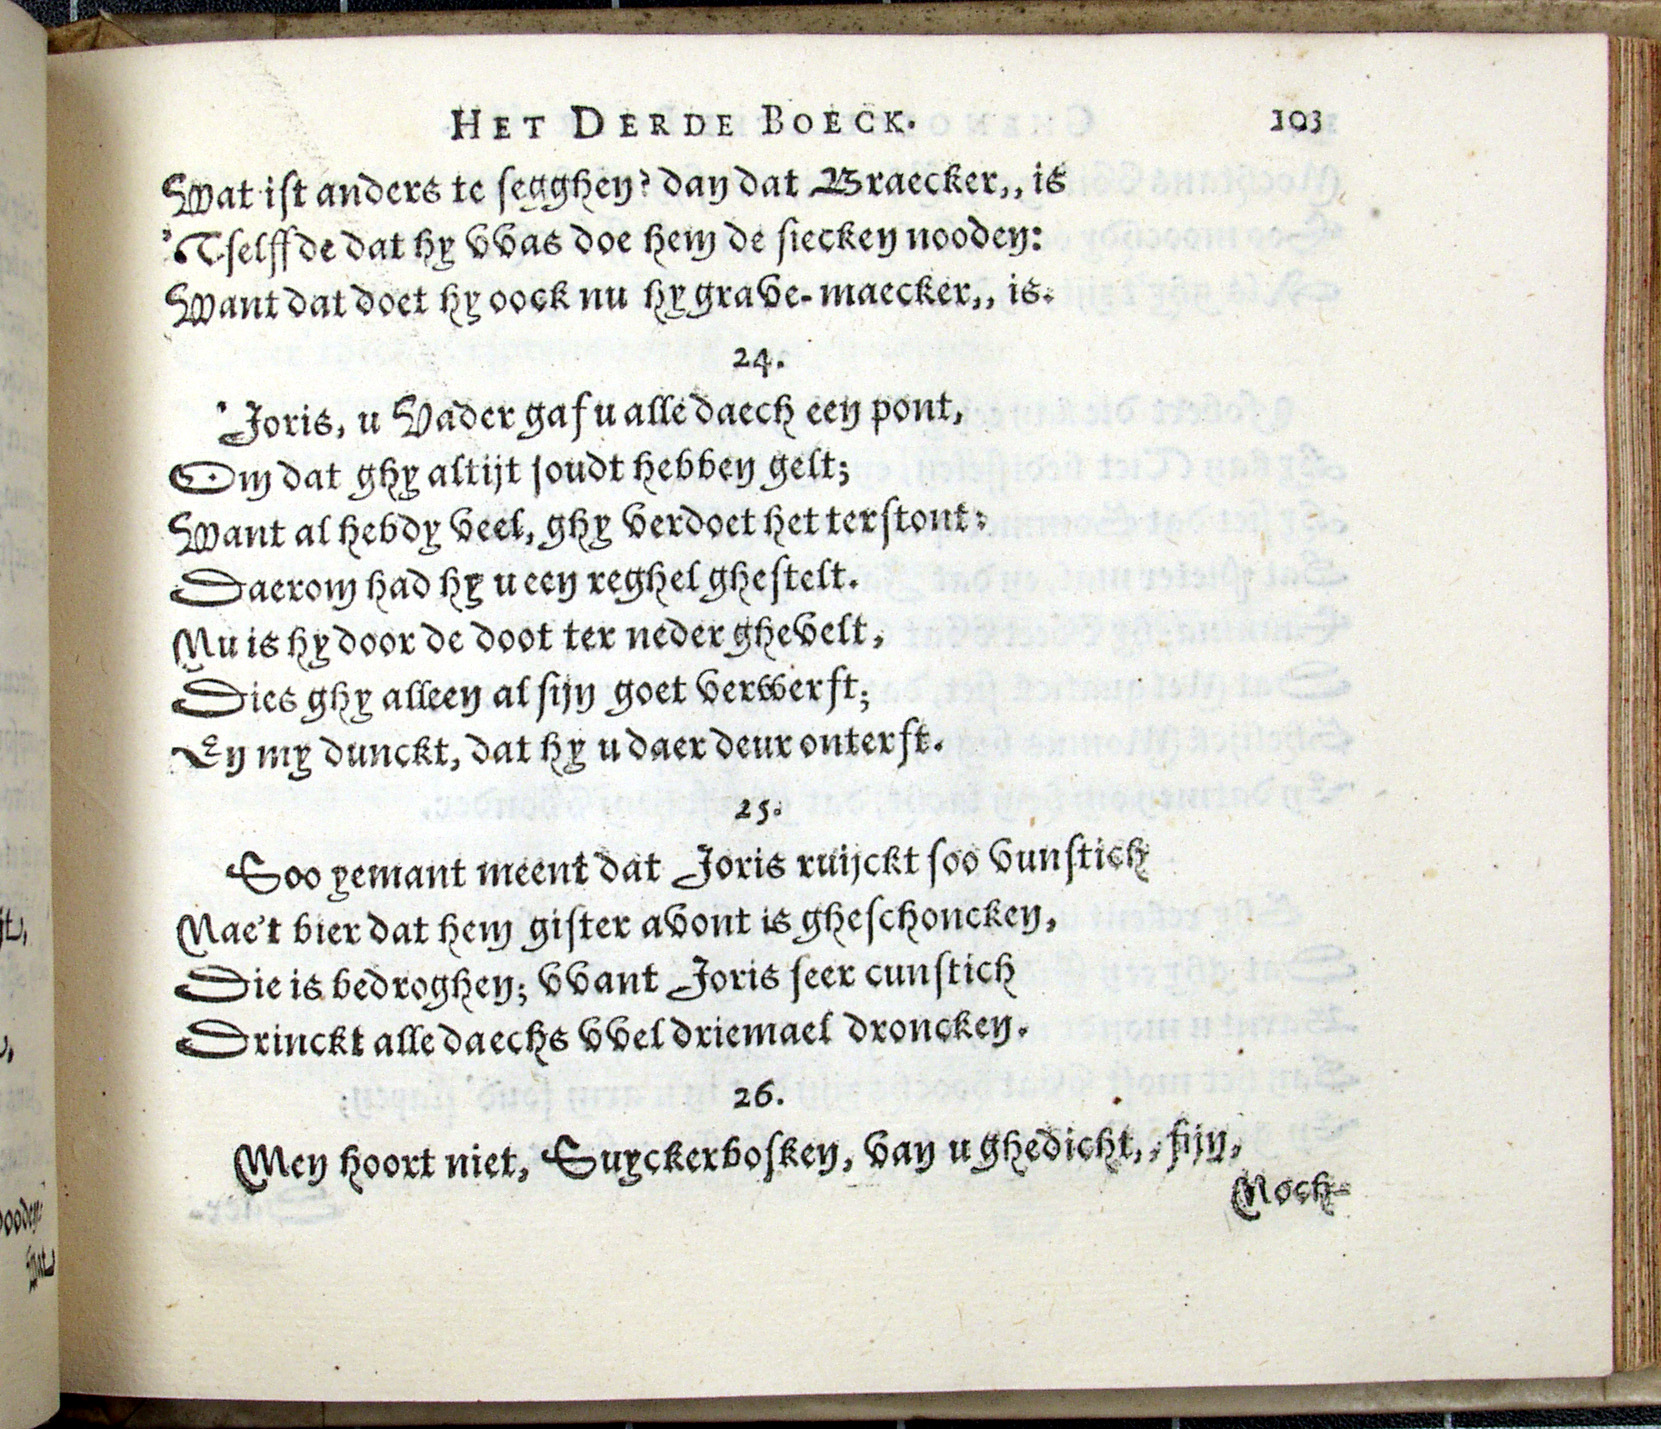 HET DERDE BOECK. 103
Wat ist anders te segghen? dan dat Braecker,, is
'Tselffde dat hy vvas doe hem de siecken nooden:
Want dat doet hy oock nu hy grave-maecker,, is.
24.
Joris, u Vader gaf u alle daech een pont,
Om dat ghy altijt soudt hebben gelt;
Want al hebdy veel, ghy verdoet het terstont:
Daerom had hy u een reghel ghestelt.
Nu is hy door de doot ter neder ghevelt,
Dies ghy alleen al sijn goet verwerft;
En my dunckt, dat hy u daer deur onterft.
25.
Soo yemant meent dat Joris ruijckt soo vunstich
Nae't bier dat hem gister avont is gheschoncken,
Die is bedroghen; vvant Joris seer cunstich
Drinckt alle daechs vvel driemael droncken.
26.
Men hoort niet, Suyckerbosken, van u ghedicht,, sijn,
Noch-